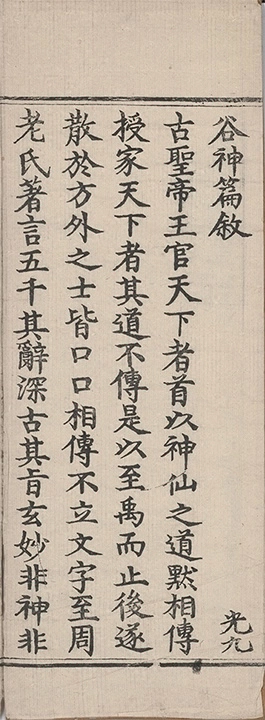 谷神篇敘
光九
古聖帝王官天下者首以神仙之道默相傳
授家天下者其道不傳是以至禹而止後遂
散於方外之士皆口口相傳不立文字至周
老氏著言五千其辭深古其旨玄妙非神非